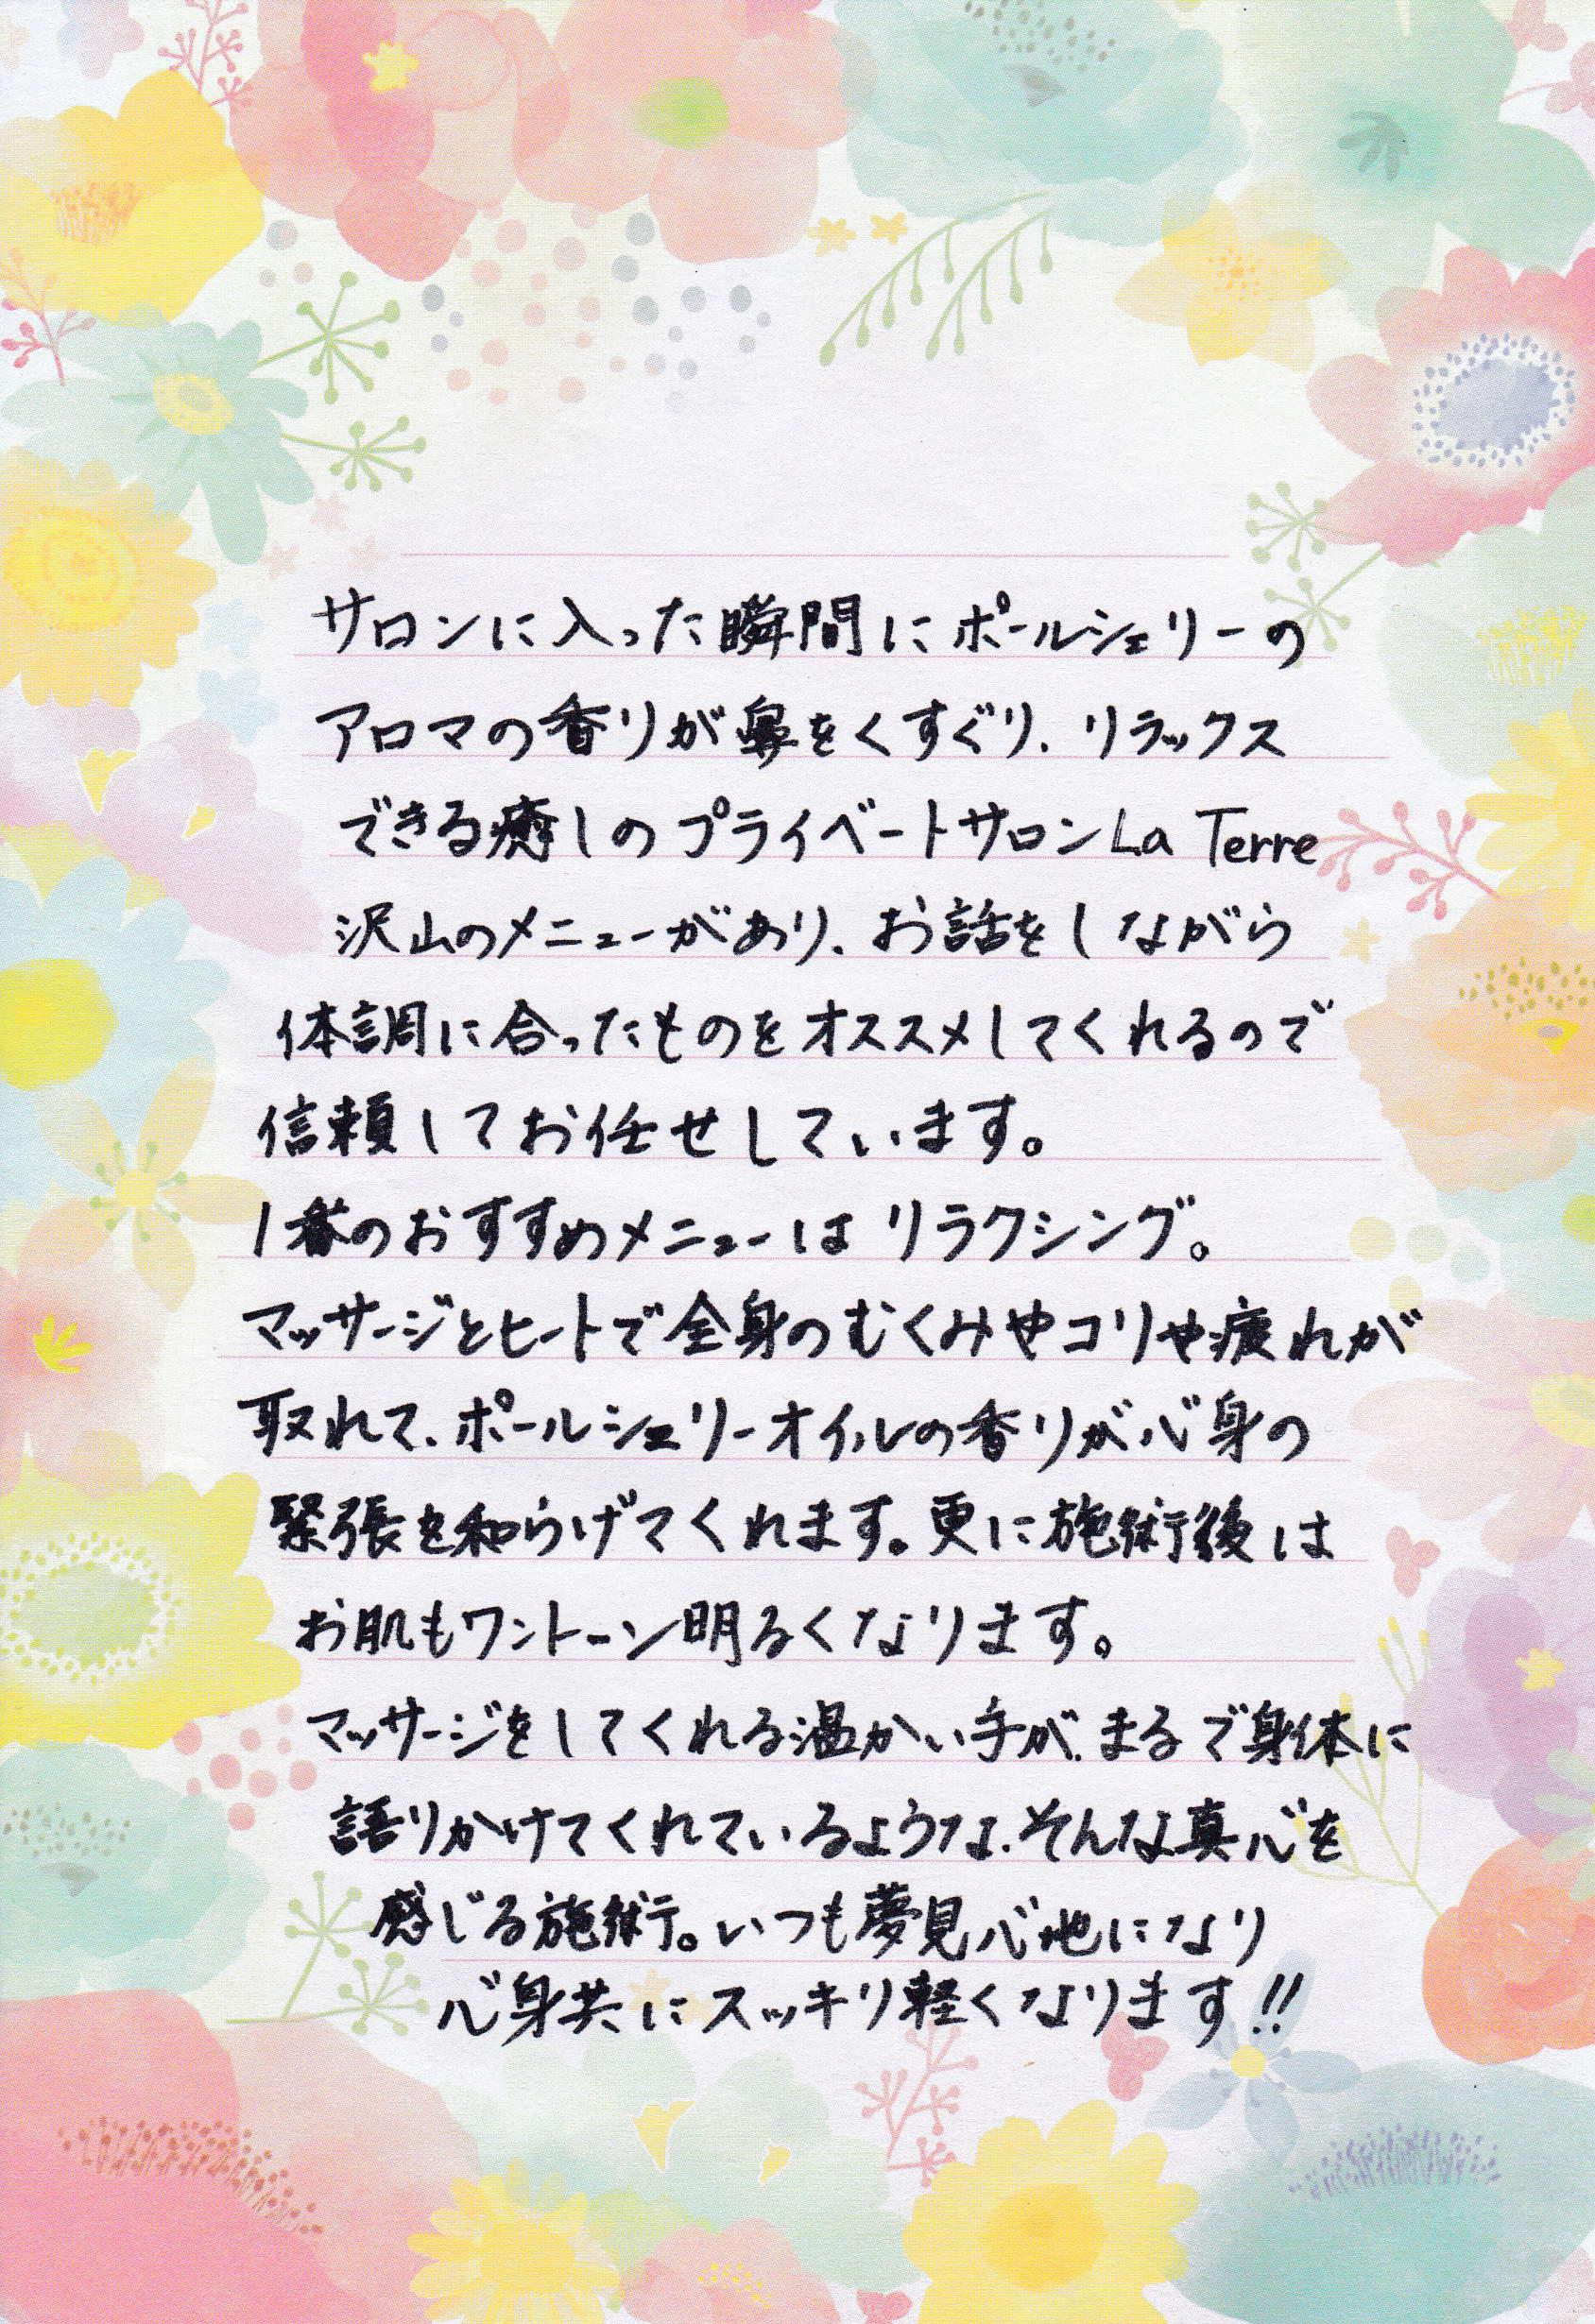 サロンに入った瞬間にポールシェリーの
アロマの香りが鼻をくすぐり、リラックス
できる癒しのプライベートサロンLa Terre
沢山のメニューがあり、お話をしながら
体調に合ったものをオススメしてくれるので
信頼してお任せしています。
1番のおすすめメニューはリラクシング。
マッサージとヒートで全身のむくみやコリや疲れが
取れて、ポールシェリーオイルの香りが心身の
緊張を和らげてくれます。更に施術後は
お肌もワントーン明るくなります。
マッサージをしてくれる温かい手が、まるで身体に
語りかけてくれているような、そんな真心を
感じる施術。いつも夢見心地になり
心身共にスッキリ軽くなります!!